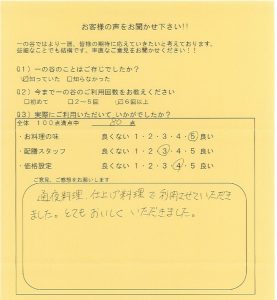 お客様の声をお聞かせ下さい!!
一の谷ではより一層、皆様の期待に応えていきたいと考えております。
些細なことでも結構です。率直なご意見をお聞かせください！！
Q1）一の谷のことはご存じでしたか？
☑知っていた □知らなかった
Q2）今まで一の谷のご利用回数をお教えください
□初めて □2～5回 ☑6回以上
Q3）実際にご利用いただいていかがでしたか？
全体 100点満点中 点
・お料理の味 良くない 1・2・3・4・5 良い
・配膳スタッフ 良くない 1・2・3・4・5 良い
・価格設定 良くない 1・2・3・4・5 良い
ご意見、ご感想をお願いします
通夜料理、仕上げ料理で利用させていただき
ました。とてもおいしくいただきました。